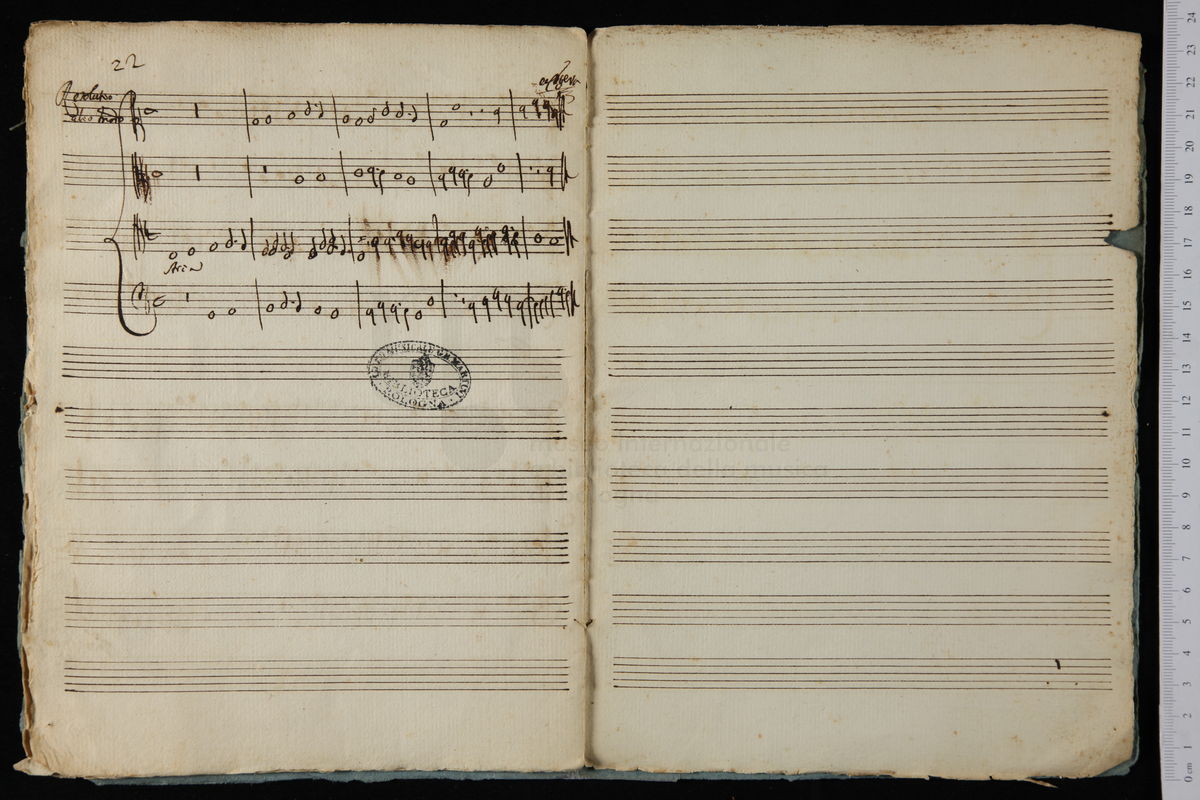 22
alio modo
Aria
LICEO MUSICALE G.B. MARTINI
BIBLIOTECA
BOLOGNA
museo internazionale
e biblioteca della musica
24
23
22
21
20
19
18
17
16
15
14
13
12
11
10
9
8
7
6
5
4
3
2
1
0 cm